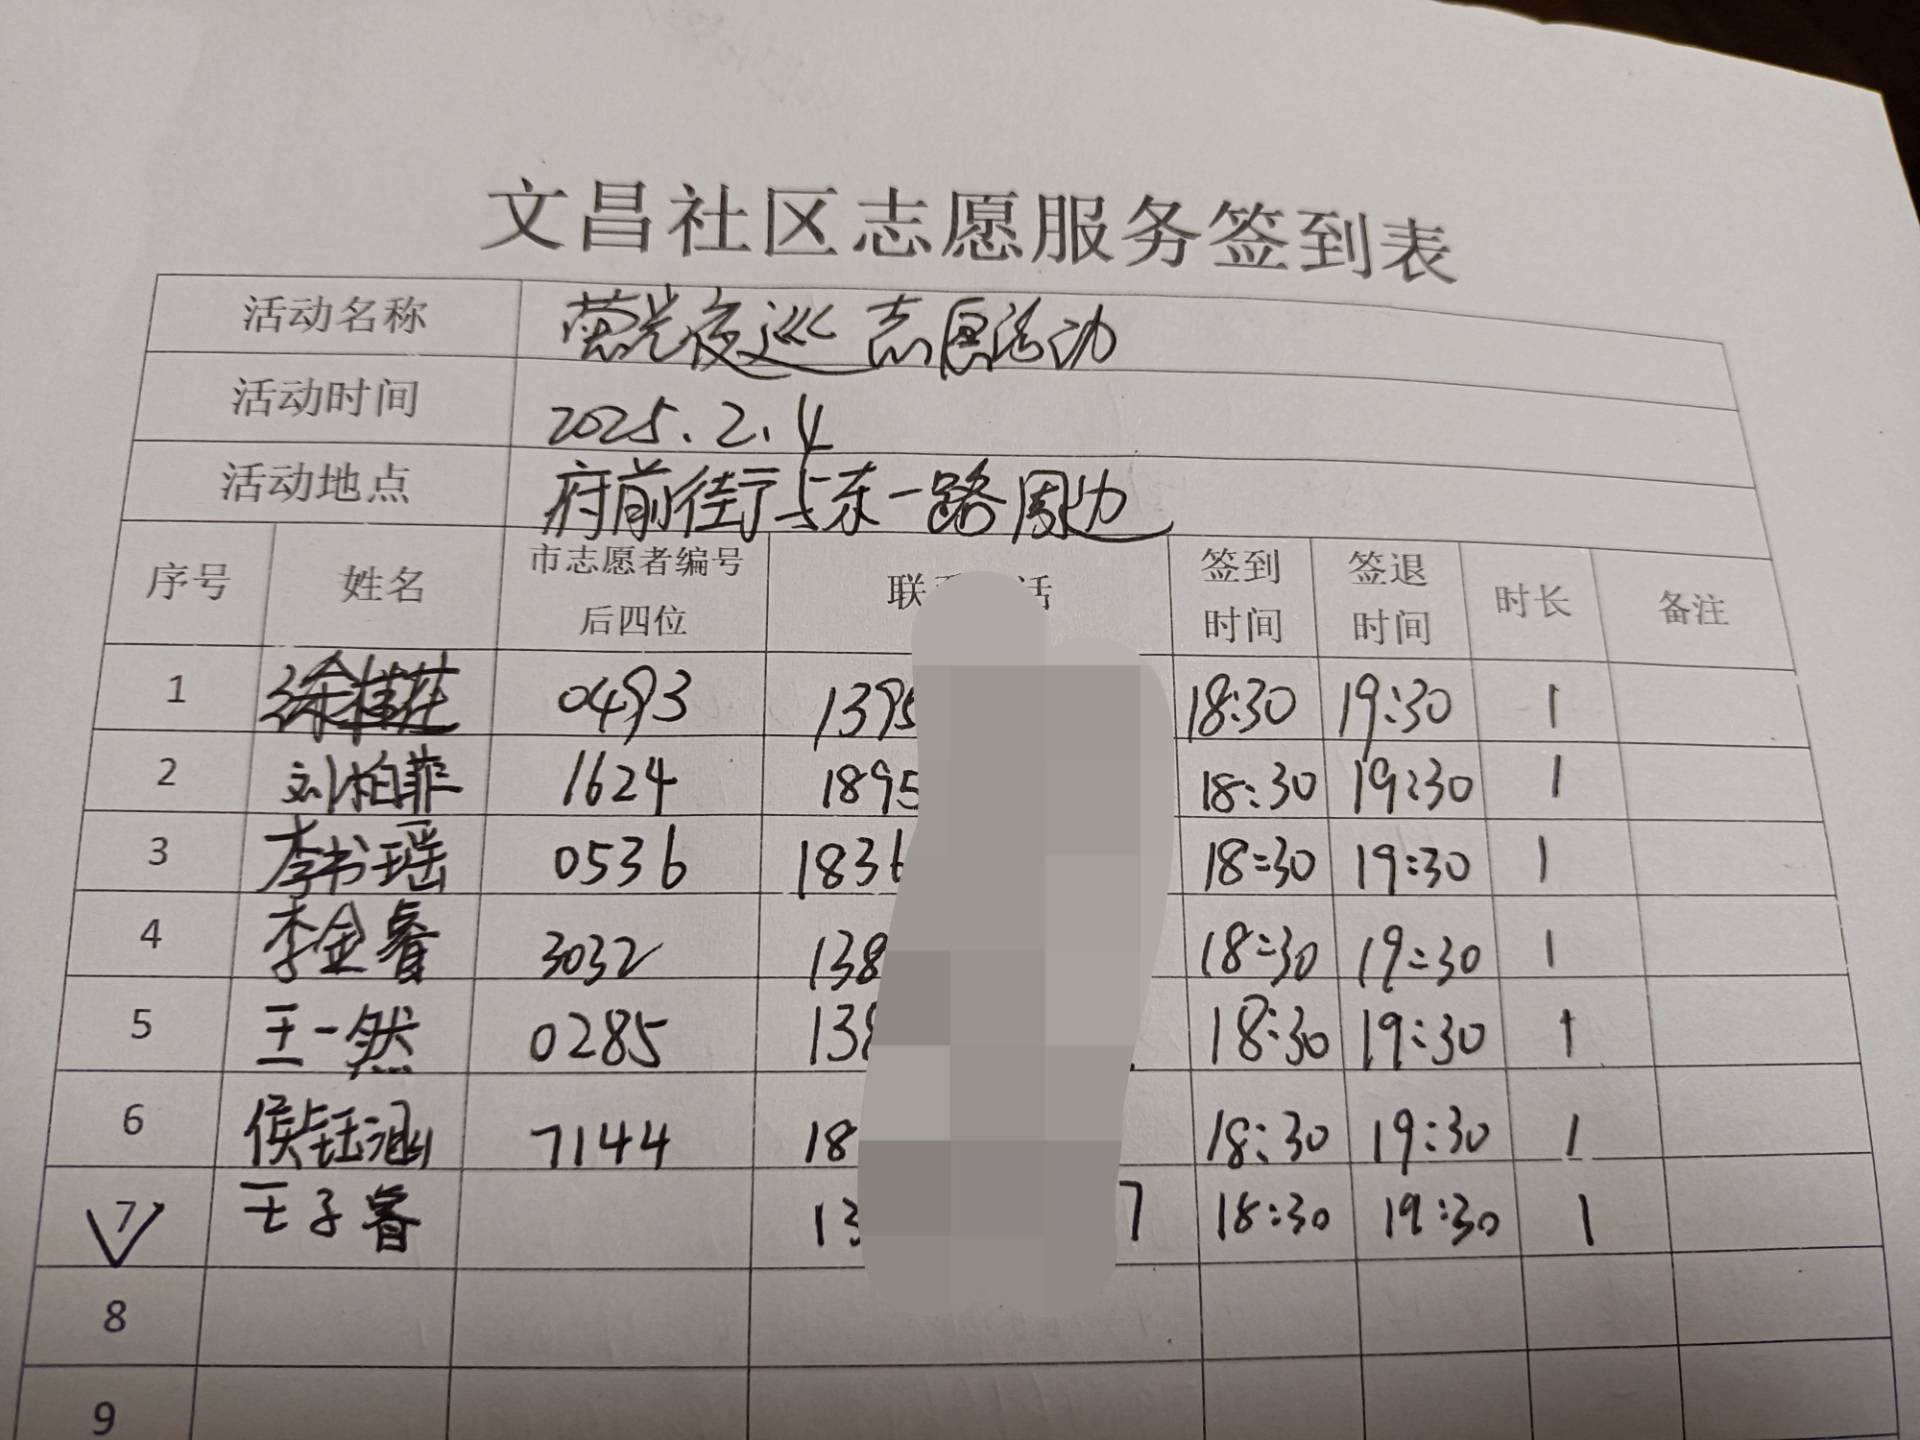 文昌社区志愿服务签到表
活动名称 萤光夜巡志愿活动
活动时间 2025.2.4
活动地点 府前街与东一路周边
序号 姓名 市志愿者编号后四位 联 话 签到时间 签退时间 时长 备注
1 徐 0493 1395 18:30 19:30 1
2 刘柏菲 1624 1895 18:30 19:30 1
3 李书瑶 0536 1836 18:30 19:30 1
4 李金睿 3032 138 18:30 19:30 1
5 王一然 0285 138 18:30 19:30 1
6 侯钰涵 7144 18 18:30 19:30 1
7 王子睿 13 7 18:30 19:30 1
8
9